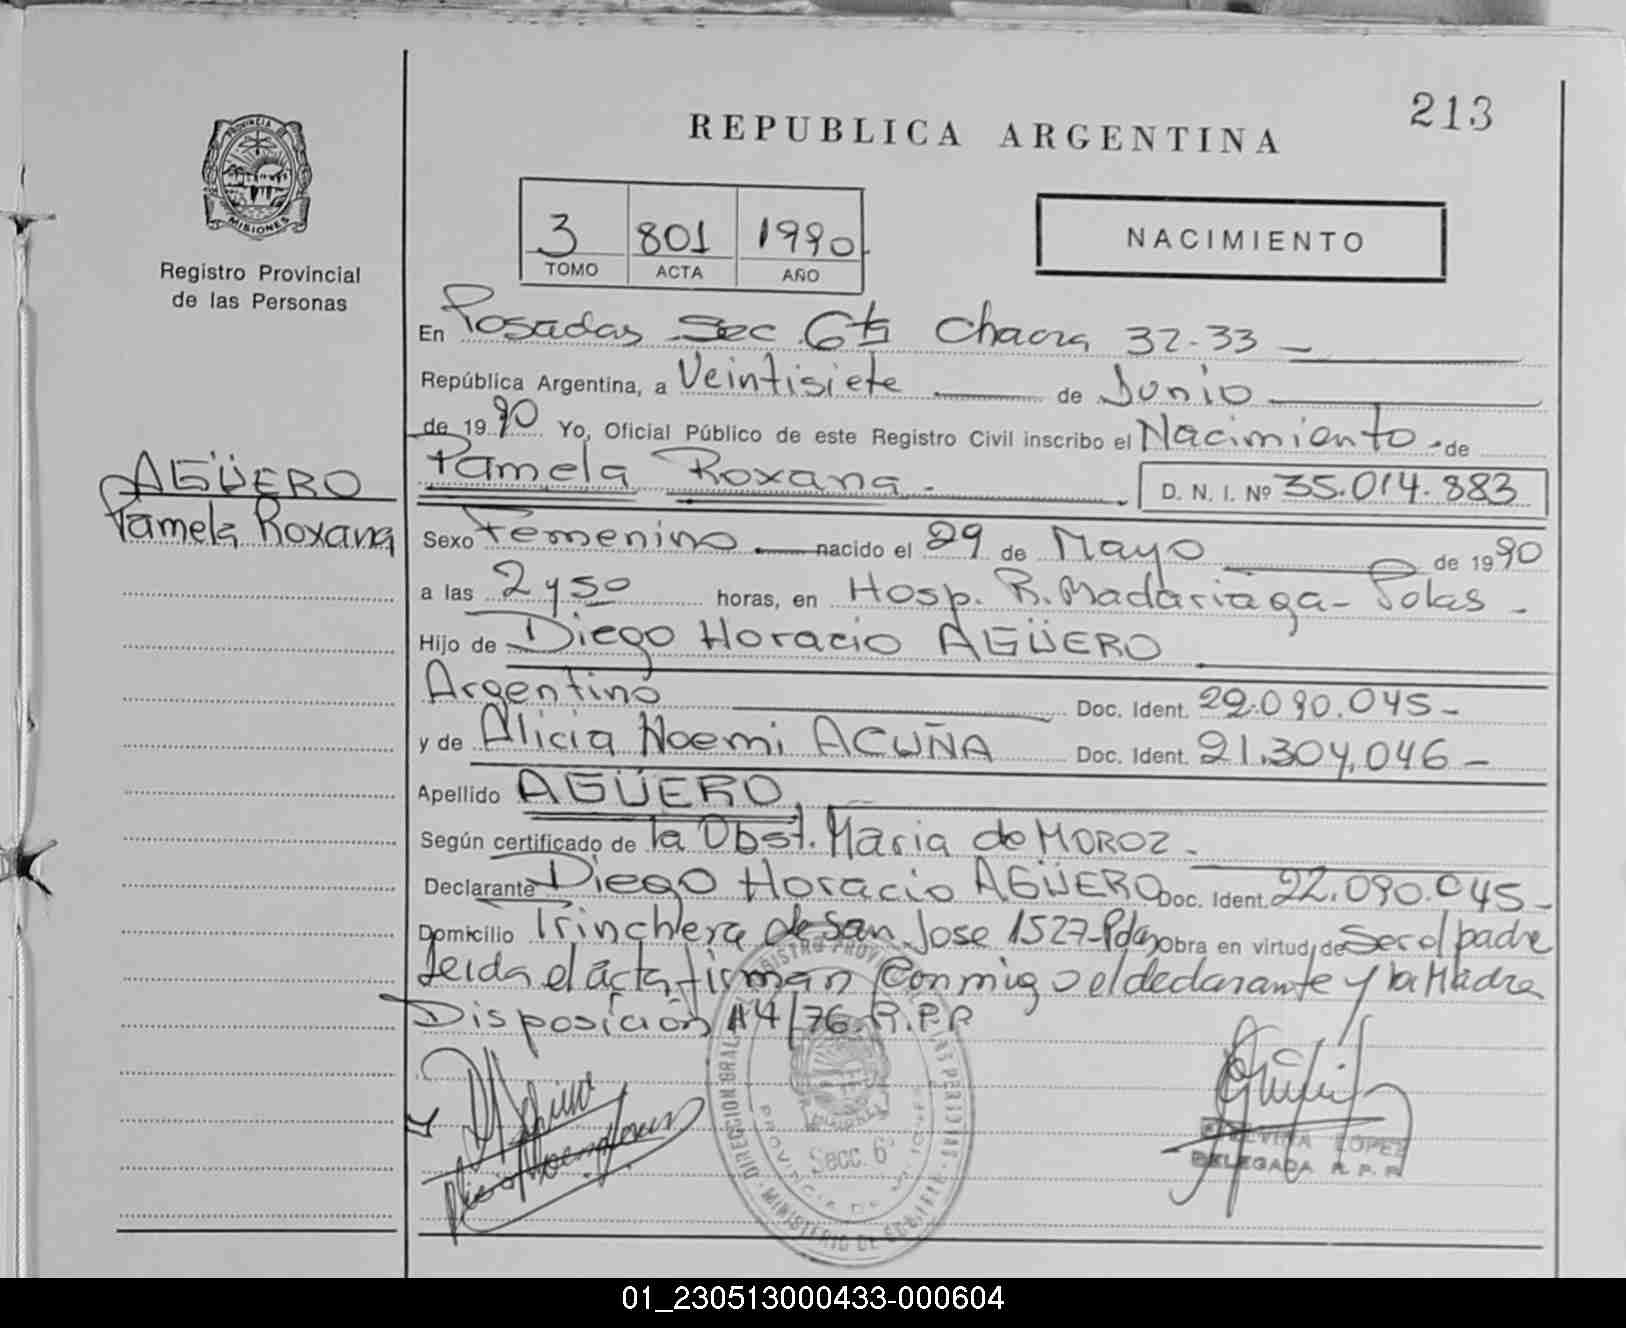 213
REPUBLICA ARGENTINA
PROVINCIA DE
MISIONES
Registro Provincial
de las Personas
3 801 1990
TOMO ACTA AÑO
NACIMIENTO
En Posadas Sec 6ta Chacra 32-33 -
República Argentina, a Veintisiete de Junio
de 1990 Yo, Oficial Público de este Registro Civil inscribo el Nacimiento - de
Pamela Roxana - D. N. I. Nº 35.014.883
AGÜERO
Pamela Roxana
Sexo Femenino nacido el 29 de Mayo de 1990
a las 2 y 50 horas, en Hosp. R. Madariaga - Pdas -
Hijo de Diego Horacio AGÜERO
Argentino Doc. Ident. 22.090.045 -
y de Alicia Noemi ACUÑA Doc. Ident. 21.304.046 -
Apellido AGÜERO
Según certificado de la Obst. Maria de MOROZ -
Declarante Diego Horacio AGÜERO Doc. Ident. 22.090.045 -
Domicilio Trinchera de San Jose 1527-Pdas obra en virtud de Ser el padre
Leida el acta firman Conmigo el declarante y la Madre
Disposición #4/76 R.P.P
DIRECCION GRAL. REGISTRO PROV. DE LAS PERSONAS
Secc. 6ª
PROVINCIA DE MISIONES
MINISTERIO DE GOBIERNO
ELVIRA LOPEZ
DELEGADA R. P. P.
01_230513000433-000604